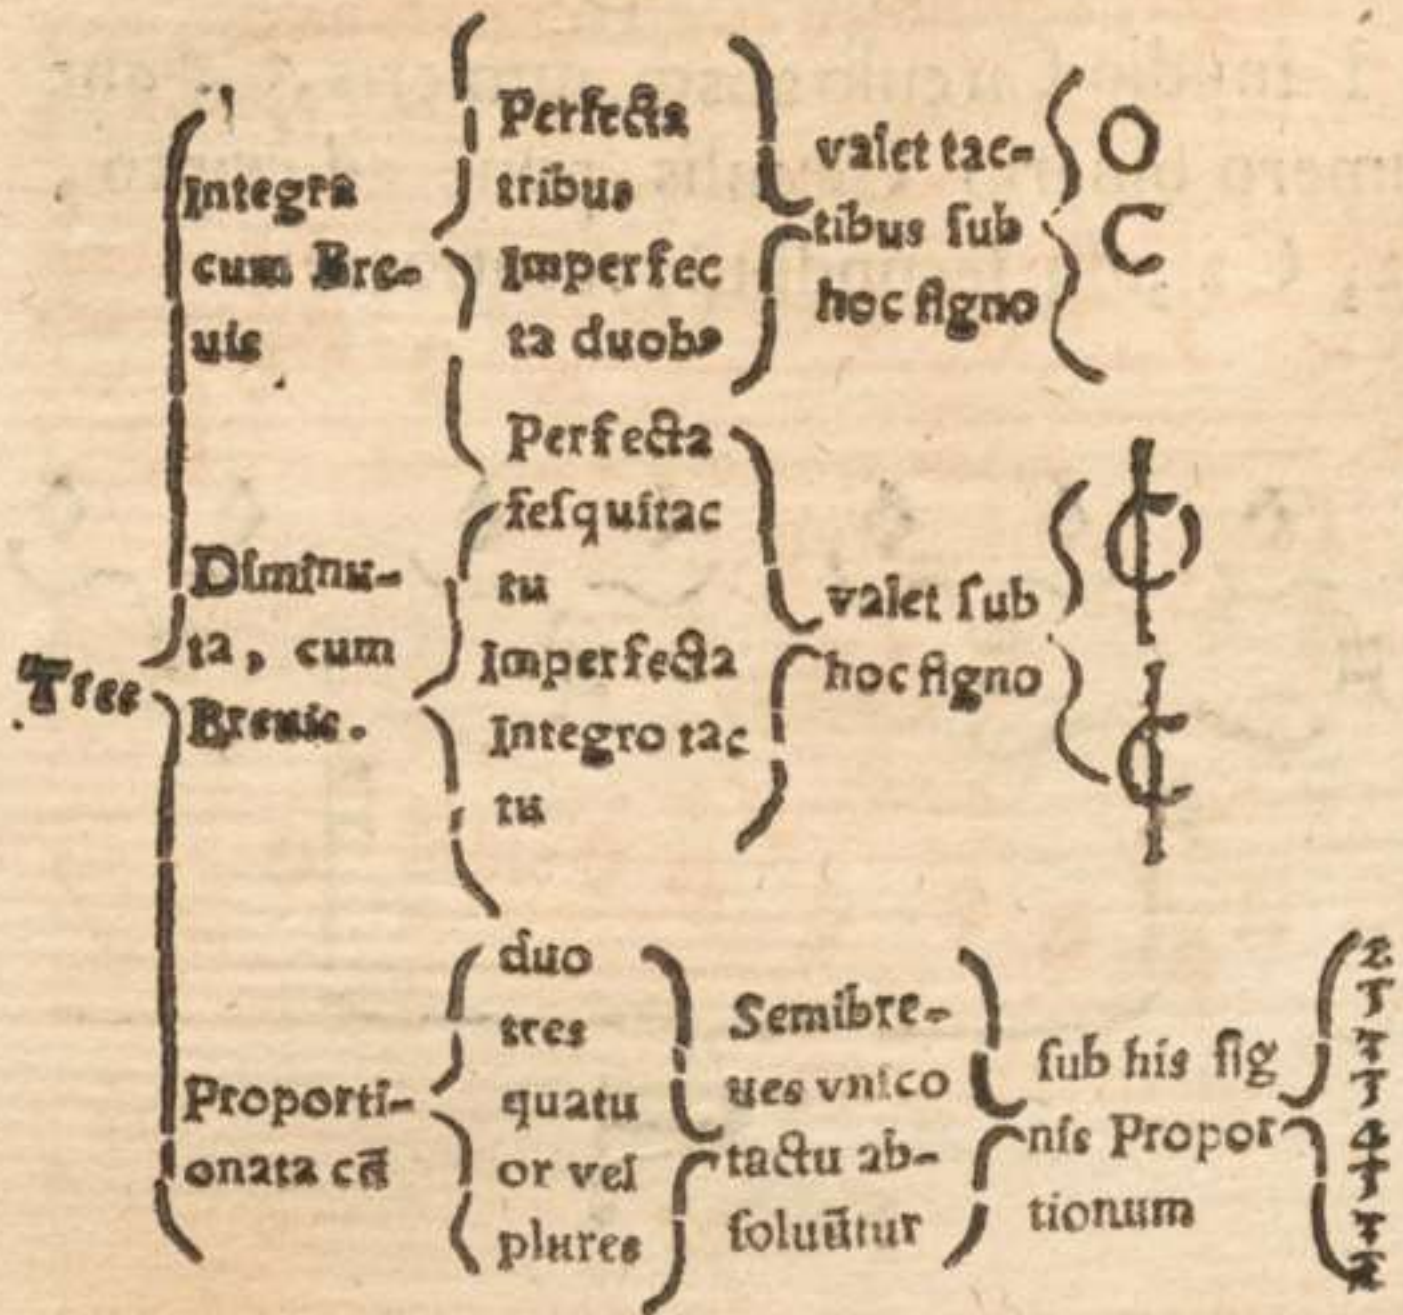 Tres
Integra
cum Bre-
uis
Perfecta
tribus
Imperfec
ta duobꝰ
valet tac-
tibus ſub
hoc ſigno
O
C
Diminu-
ta, cum
Breuis.
Perfecta
ſeſquitac
tu
Imperfecta
Integro tac
tu
valet ſub
hoc ſigno
Proporti-
onata cū
duo
tres
quatu
or vel
plures
Semibre-
ues vnico
tactu ab-
ſoluūtur
ſub his ſig
nis Propor
tionum
2
1
1
4
1